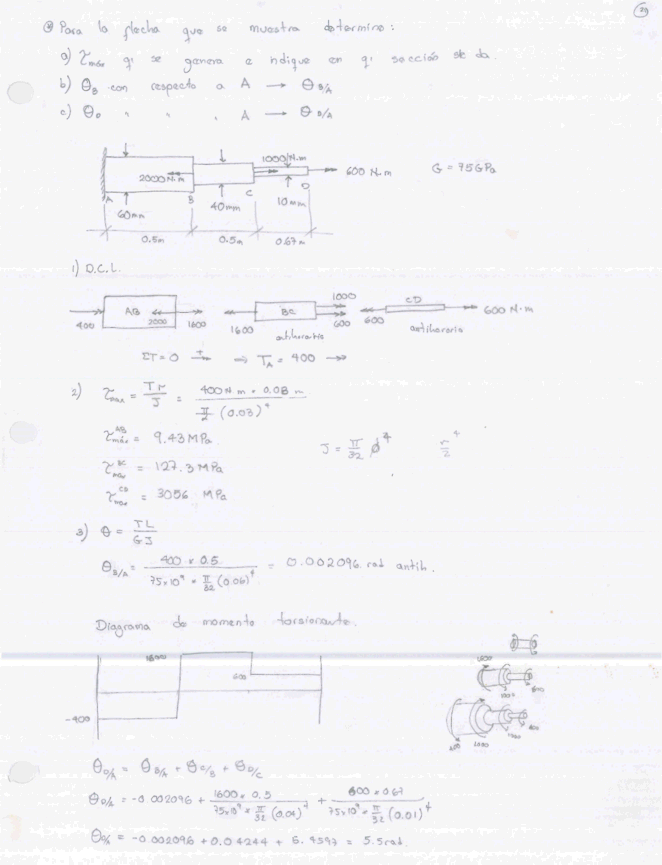 29
Para la flecha que se muestra determine:
a) τmáx q' se genera e indique en q' sección se da.
b) θB con respecto a A → θB/A
c) θD " " " A → θD/A
1000 N·m
2000 N·m
600 N·m
G = 75GPa
A B C D
60mm 40mm 10mm
0.5m 0.5m 0.67m
1) D.C.L.
400 AB 2000 1600
1600 BC 1000 600
antihorario
600 CD 600 N·m
antihorario
ΣT = 0 ⇒ TA = 400
2) τmax = Tr/J = 400 N m × 0.03 m / π/2 (0.03)^4
τmáx AB = 9.43 MPa
J = π/32 ϕ^4
r^4/2
τmax BC = 127.3 MPa
τmax CD = 3056 MPa
3) θ = TL/GJ
θB/A = 400 × 0.5 / 75×10^9 × π/32 (0.06)^4 = 0.002096 rad antih.
Diagrama de momento torsionante.
1600
600
-400
θD/A = θB/A + θC/B + θD/C
θD/A = -0.002096 + 1600 × 0.5 / 75×10^9 × π/32 (0.04)^4 + 600 × 0.67 / 75×10^9 × π/32 (0.01)^4
θD/A = -0.002096 + 0.04244 + 5.4597 = 5.5 rad.